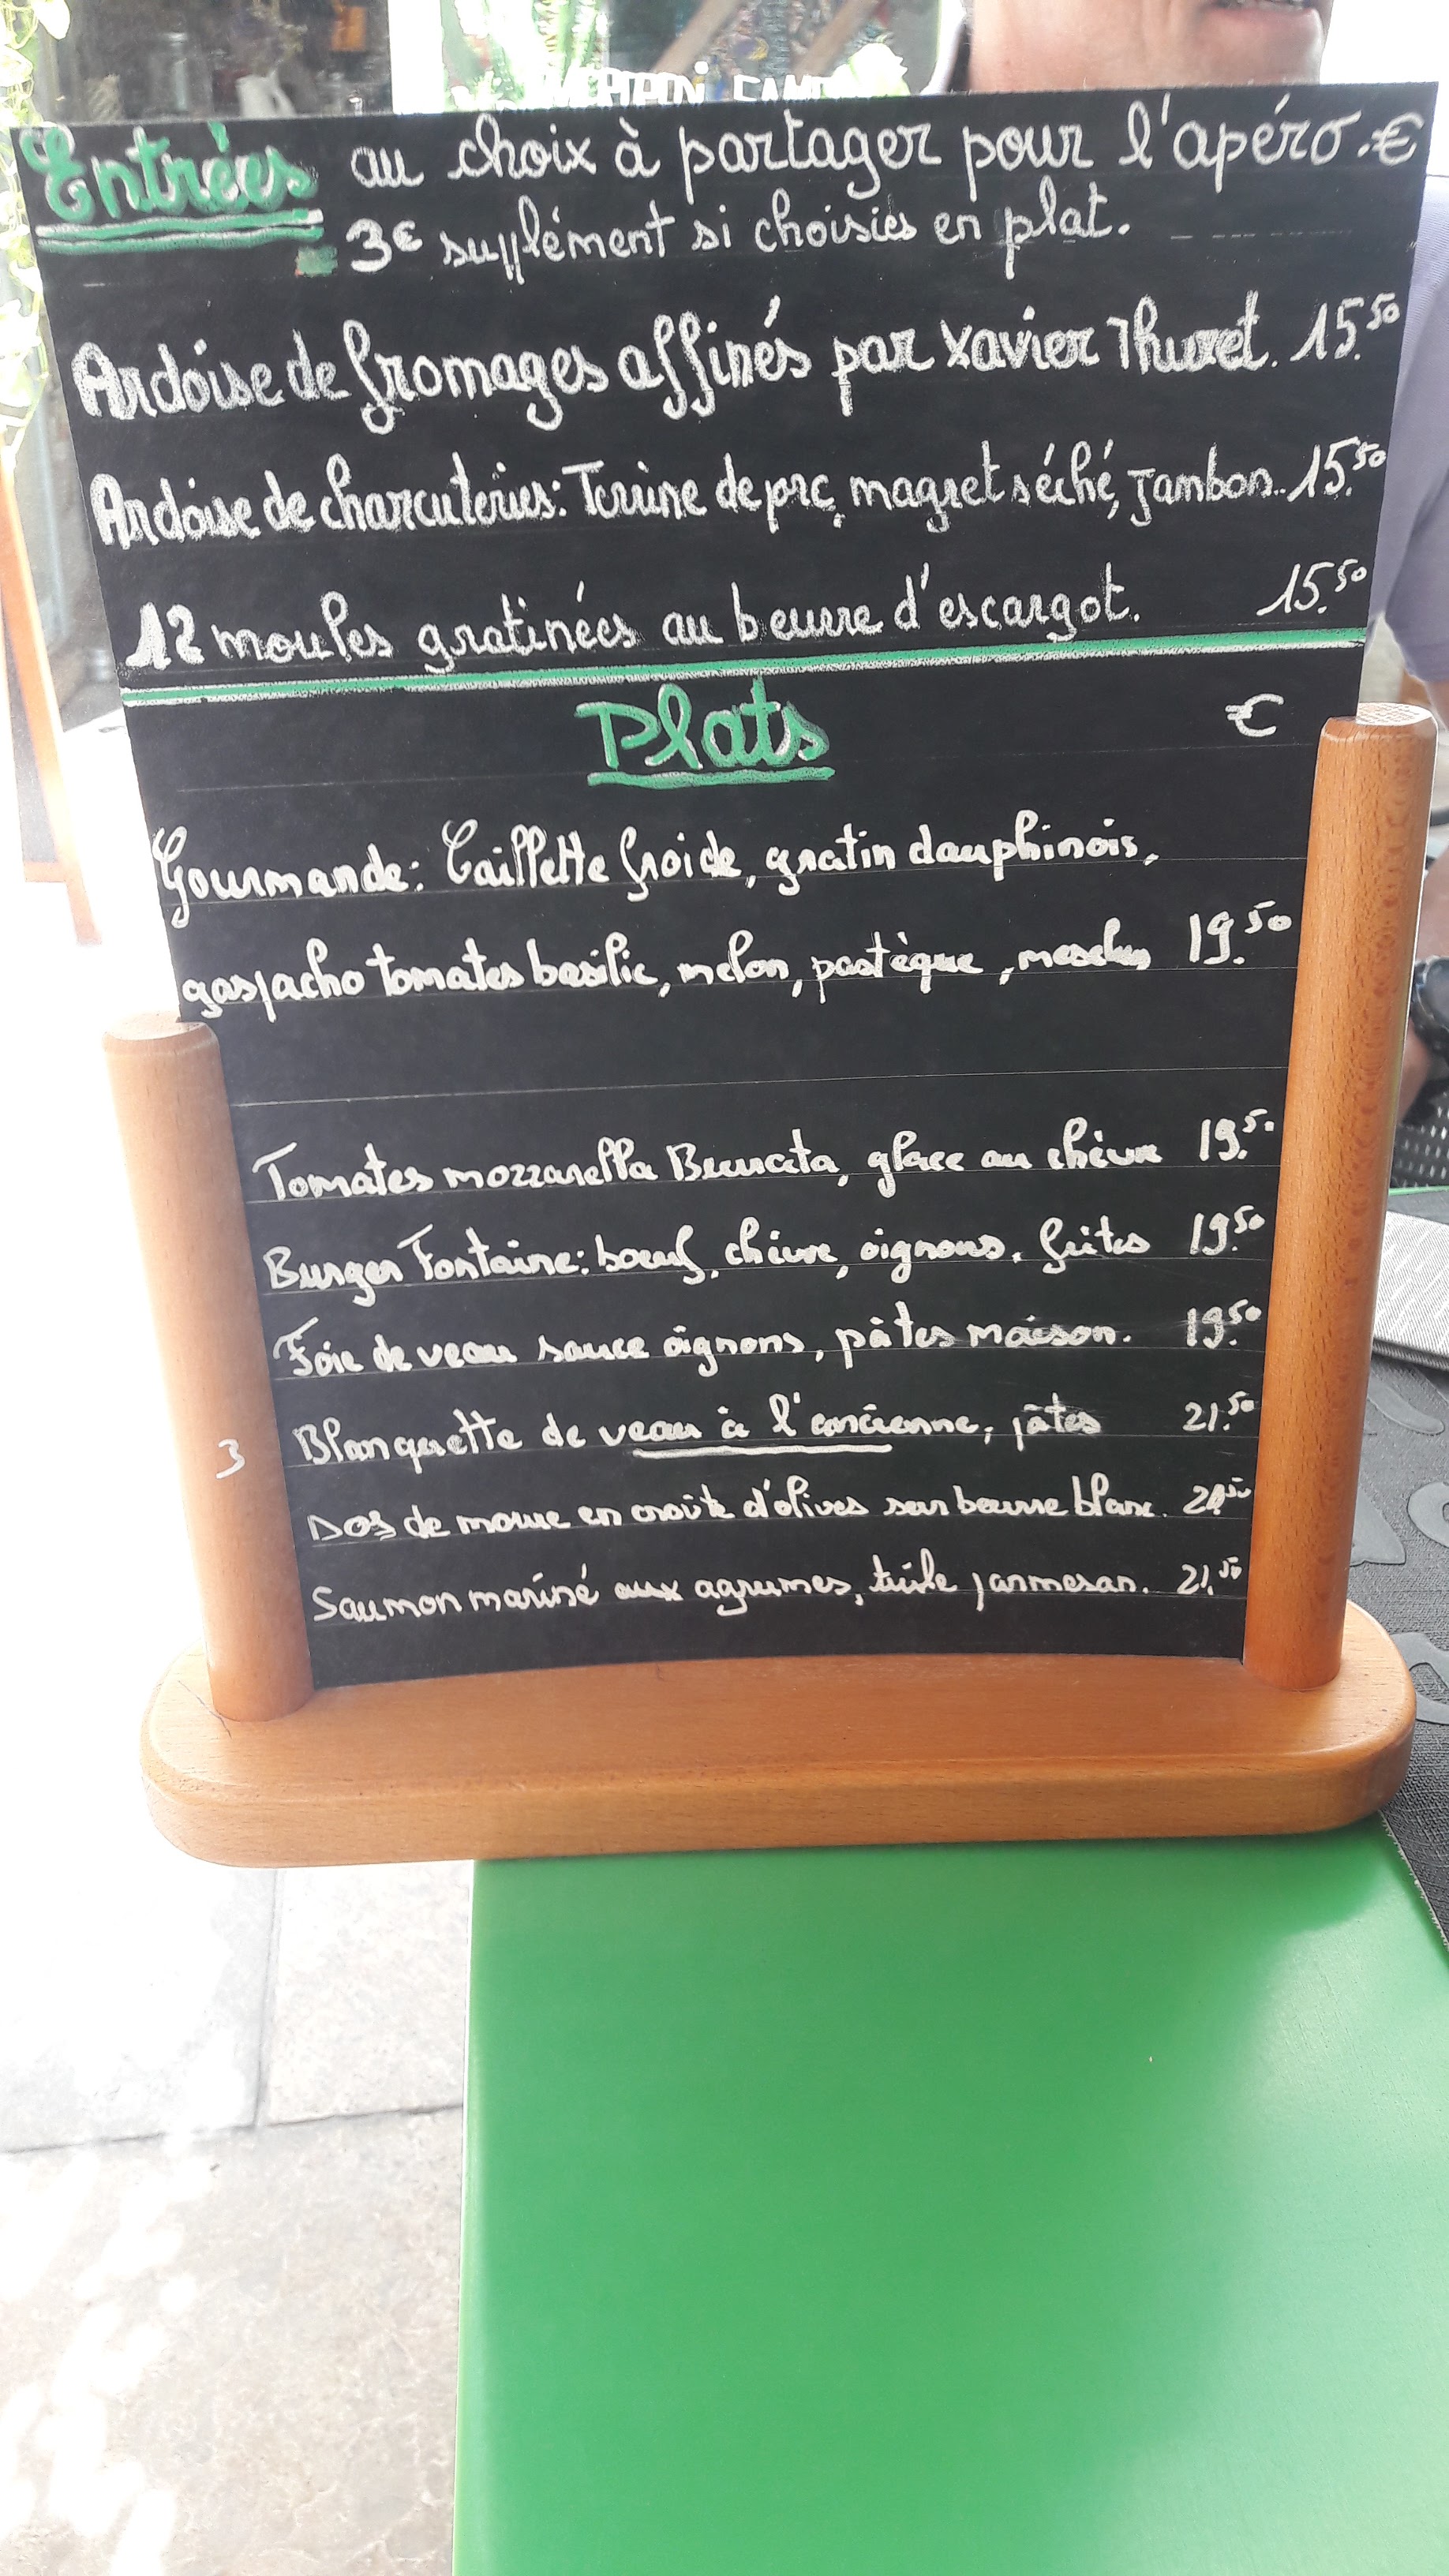 Entrées au choix à partager pour l'apéro. €
3€ supplément si choisies en plat.
Ardoise de fromages affinés par Xavier Thuret. 15.50
Ardoise de charcuteries: Terrine de porc, magret séché, Jambon.. 15.50
12 moules gratinées au beurre d'escargot. 15.50
Plats €
Gourmande: Caillette froide, gratin dauphinois,
gaspacho tomates basilic, melon, pastèque, mesclun 19.50
Tomates mozzarella Burrata, glace au chèvre 19.50
Burger Fontaine: boeuf, chèvre, oignons, frites 19.50
Foie de veau sauce oignons, pâtes maison. 19.50
Blanquette de veau à l'ancienne, pâtes 21.50
3
Dos de morue en croûte d'olives sur beurre blanc.
Saumon mariné aux agrumes, tuile parmesan. 21.50